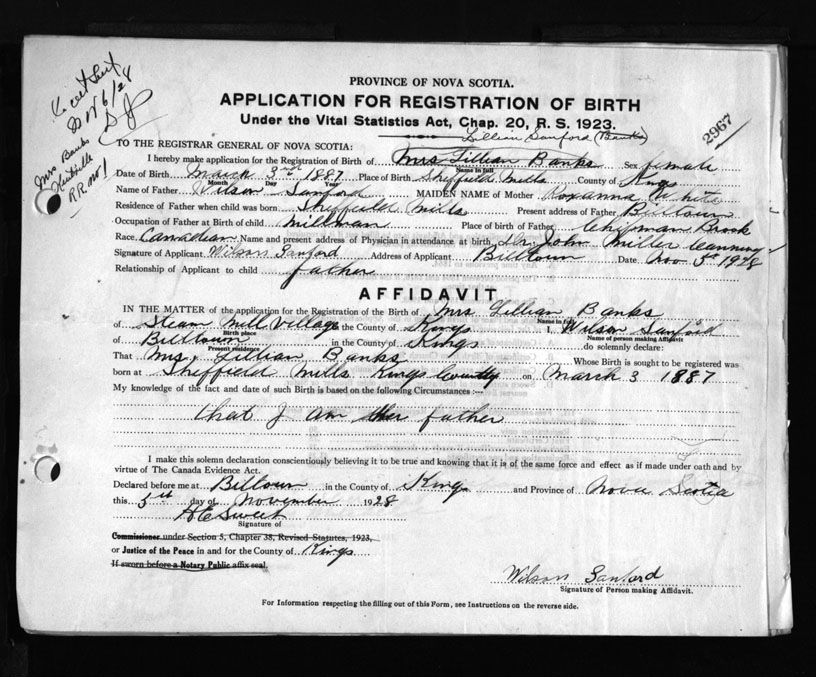 PROVINCE OF NOVA SCOTIA.
APPLICATION FOR REGISTRATION OF BIRTH
Under the Vital Statistics Act, Chap. 20, R. S. 1923.
2967
Lillian Sanford (Banks)
Mrs Banks
R R No 1
TO THE REGISTRAR GENERAL OF NOVA SCOTIA:
I hereby make application for Registration of Birth of Mrs Lillian Banks Sex female
Name in full
Date of Birth March 3rd 1887 Place of Birth Sheffield Mills County of Kings
Month Day Year
Name of Father Wilson Sanford MAIDEN NAME of Mother Roxanna White
Residence of Father when child was born Sheffield Mills Present address of Father Billtown
Occupation of Father at Birth of child Millman Place of birth of Father Chipman Brook
Race Canadian Name and present address of Physician in attendance at birth Dr. John Miller Canning
Signature of Applicant Wilson Sanford Address of Applicant Billtown Date Nov 3rd 1928
Relationship of Applicant to child father
AFFIDAVIT
IN THE MATTER of the application for the Registration of the Birth of Mrs Lillian Banks
Name in full
of Steam Mill Village in the County of Kings I, Wilson Sanford
Birth place Name of person making Affidavit
of Billtown in the County of Kings do solemnly declare:
Present residence
That Mrs, Lillian Banks Whose Birth is sought to be registered was
born at Sheffield Mills Kings County on March 3 1887
My knowledge of the fact and date of such Birth is based on the following Circumstances :—
that I am her father
I make this solemn declaration conscientiously believing it to be true and knowing that it is of the same force and effect as if made under oath and by
virtue of The Canada Evidence Act.
Declared before me at Billtown in the County of Kings and Province of Nova Scotia
this 3rd day of November 1928
H E Sweet
Signature of
Commissioner under Section 5, Chapter 38, Revised Statutes, 1923,
or Justice of the Peace in and for the County of Kings
If sworn before a Notary Public affix seal
Wilson Sanford
Signature of Person making Affidavit.
For Information respecting the filling out of this Form, see Instructions on the reverse side.